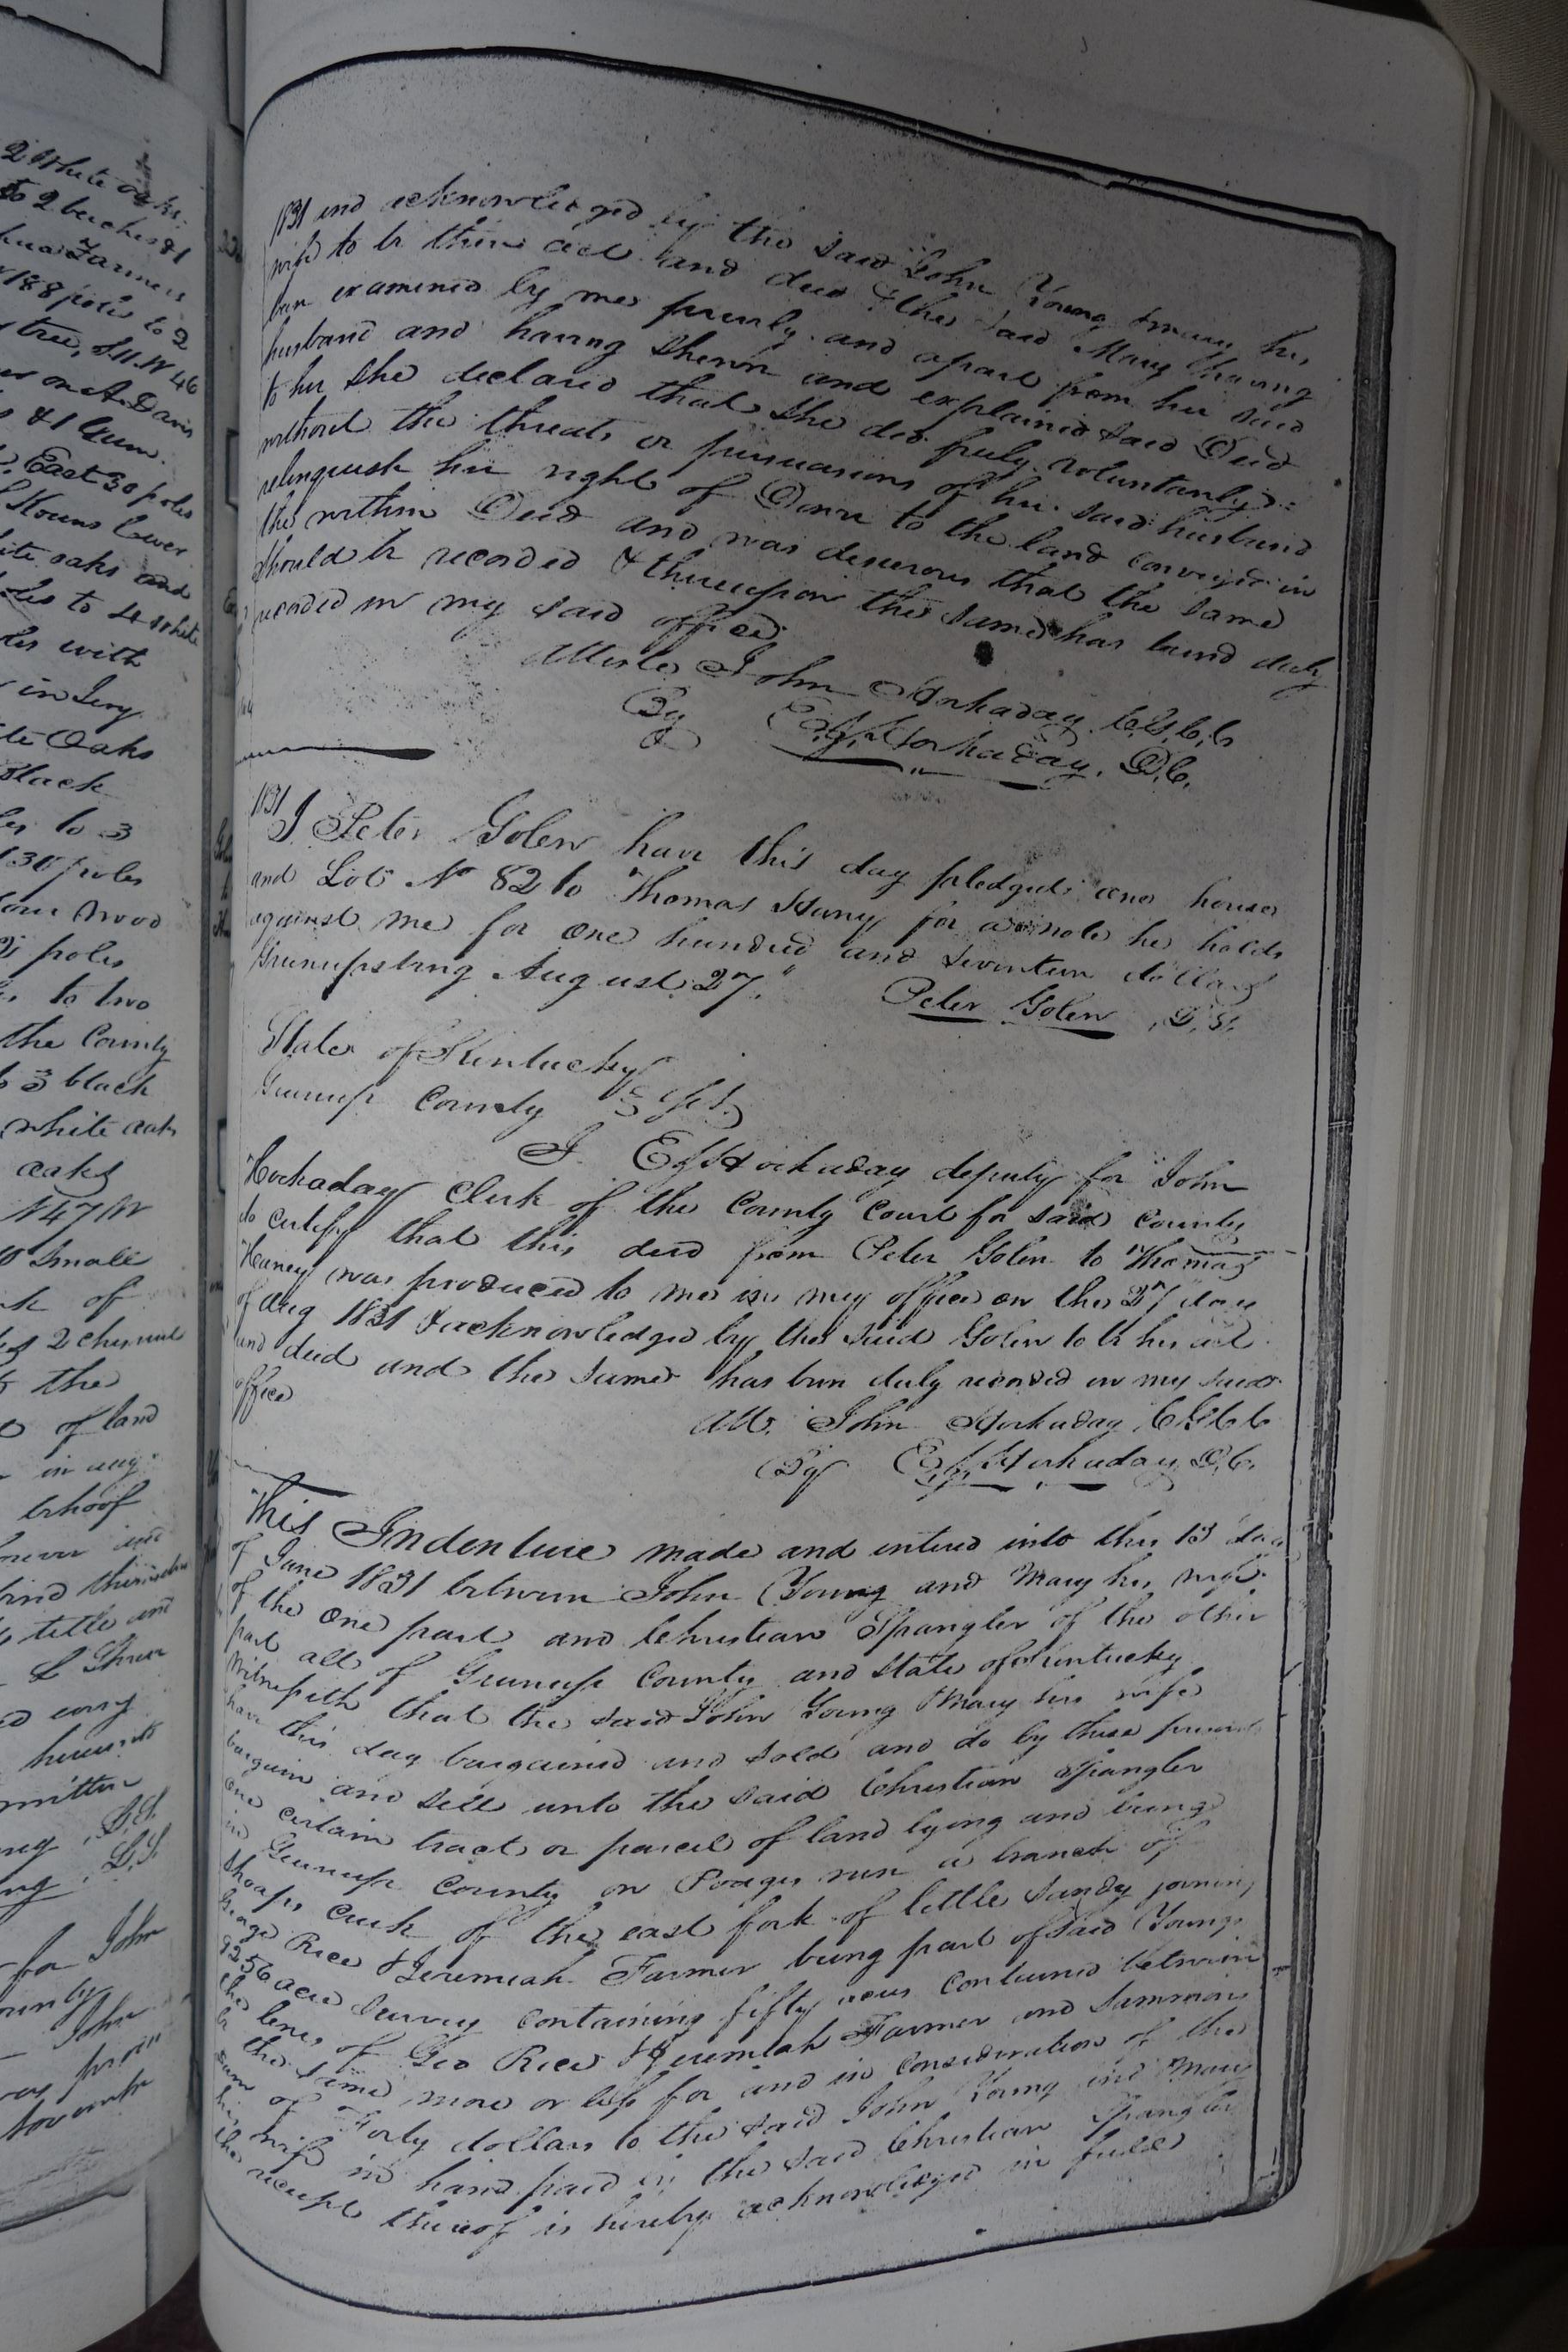 2 White oaks
to 2 beeches &1
Farmers
188 poles to 2
tree, S11.W 46
on A. Davis
&1 Gum.
East 30 poles
lower
white oaks and
poles to 4 white
with
in Levy
white Oaks
Black
to 3
130 poles
wood
poles
to two
the County
to 3 black
white oak
oaks
N47W
small
of
2 chesnut
to the
of land
in aug
behoof
forever and
bind themselves
title and
every
hereunto
written
L.S.
L.S.
for John
County
John
was
1831 and acknowledged by the said John Young & mary his
wife to be their act and deed & the said Mary having
been examined by me privily and apart from her said
husband and having shewn and explained said Deed
to her she declared that she did freely voluntarily &
without the threats or persuasions of her said husband
relinquish her right of Dower to the land conveyed in
the within Deed and was desirous that the same
should be recorded & thereupon the same has been duly
recorded in my said office
Atteste John Hockaday C.G.C.C
By E.f. Hockaday. D.C.
1831
I Peter Golen have this day pledged one house
and Lot No 82 to Thomas Hany for a note he holds
against me for one hundred and seventeen dollars
Greenupsburg August 27. Peter Golen L.S.
State of Kentucky
Greenup County Sct.
I E.f. Hockaday deputy for John
Hockaday Clerk of the County Court for said County
do certify that this deed from Peter Golen to Thomas
Haney was produced to me in my office on the 27 day
of Aug 1831 & acknowledged by the said Golen to be his act
and deed and the same has been duly recorded in my said
office
Att. John Hockaday CGCC
By E.f. Hockaday D.C.
This Indenture made and entered into this 13 day
of June 1831 between John Young and Mary his wife
of the one part and Christian Spangler of the other
part all of Greenup County and State of Kentucky
Witnesseth that the said John Young & Mary his wife
have this day bargained and sold and do by these presents
bargain and sell unto the said Christian Spangler
one certain tract or parcel of land lying and being
in Greenup County on Poages run a branch of
Shoaps creek of the east fork of little Sandy joining
George Rice & Jeremiah Farmer being part of said Youngs
9256 acre survey containing fifty acres contained between
the lines of Geo Rice & Jeremiah Farmer and Simmons
be the same more or less for and in consideration of the
sum of Forty dollars to the said John Young and Mary
his wife in hand paid by the said Christian Spangler
the receipt thereof is hereby acknowledged in full